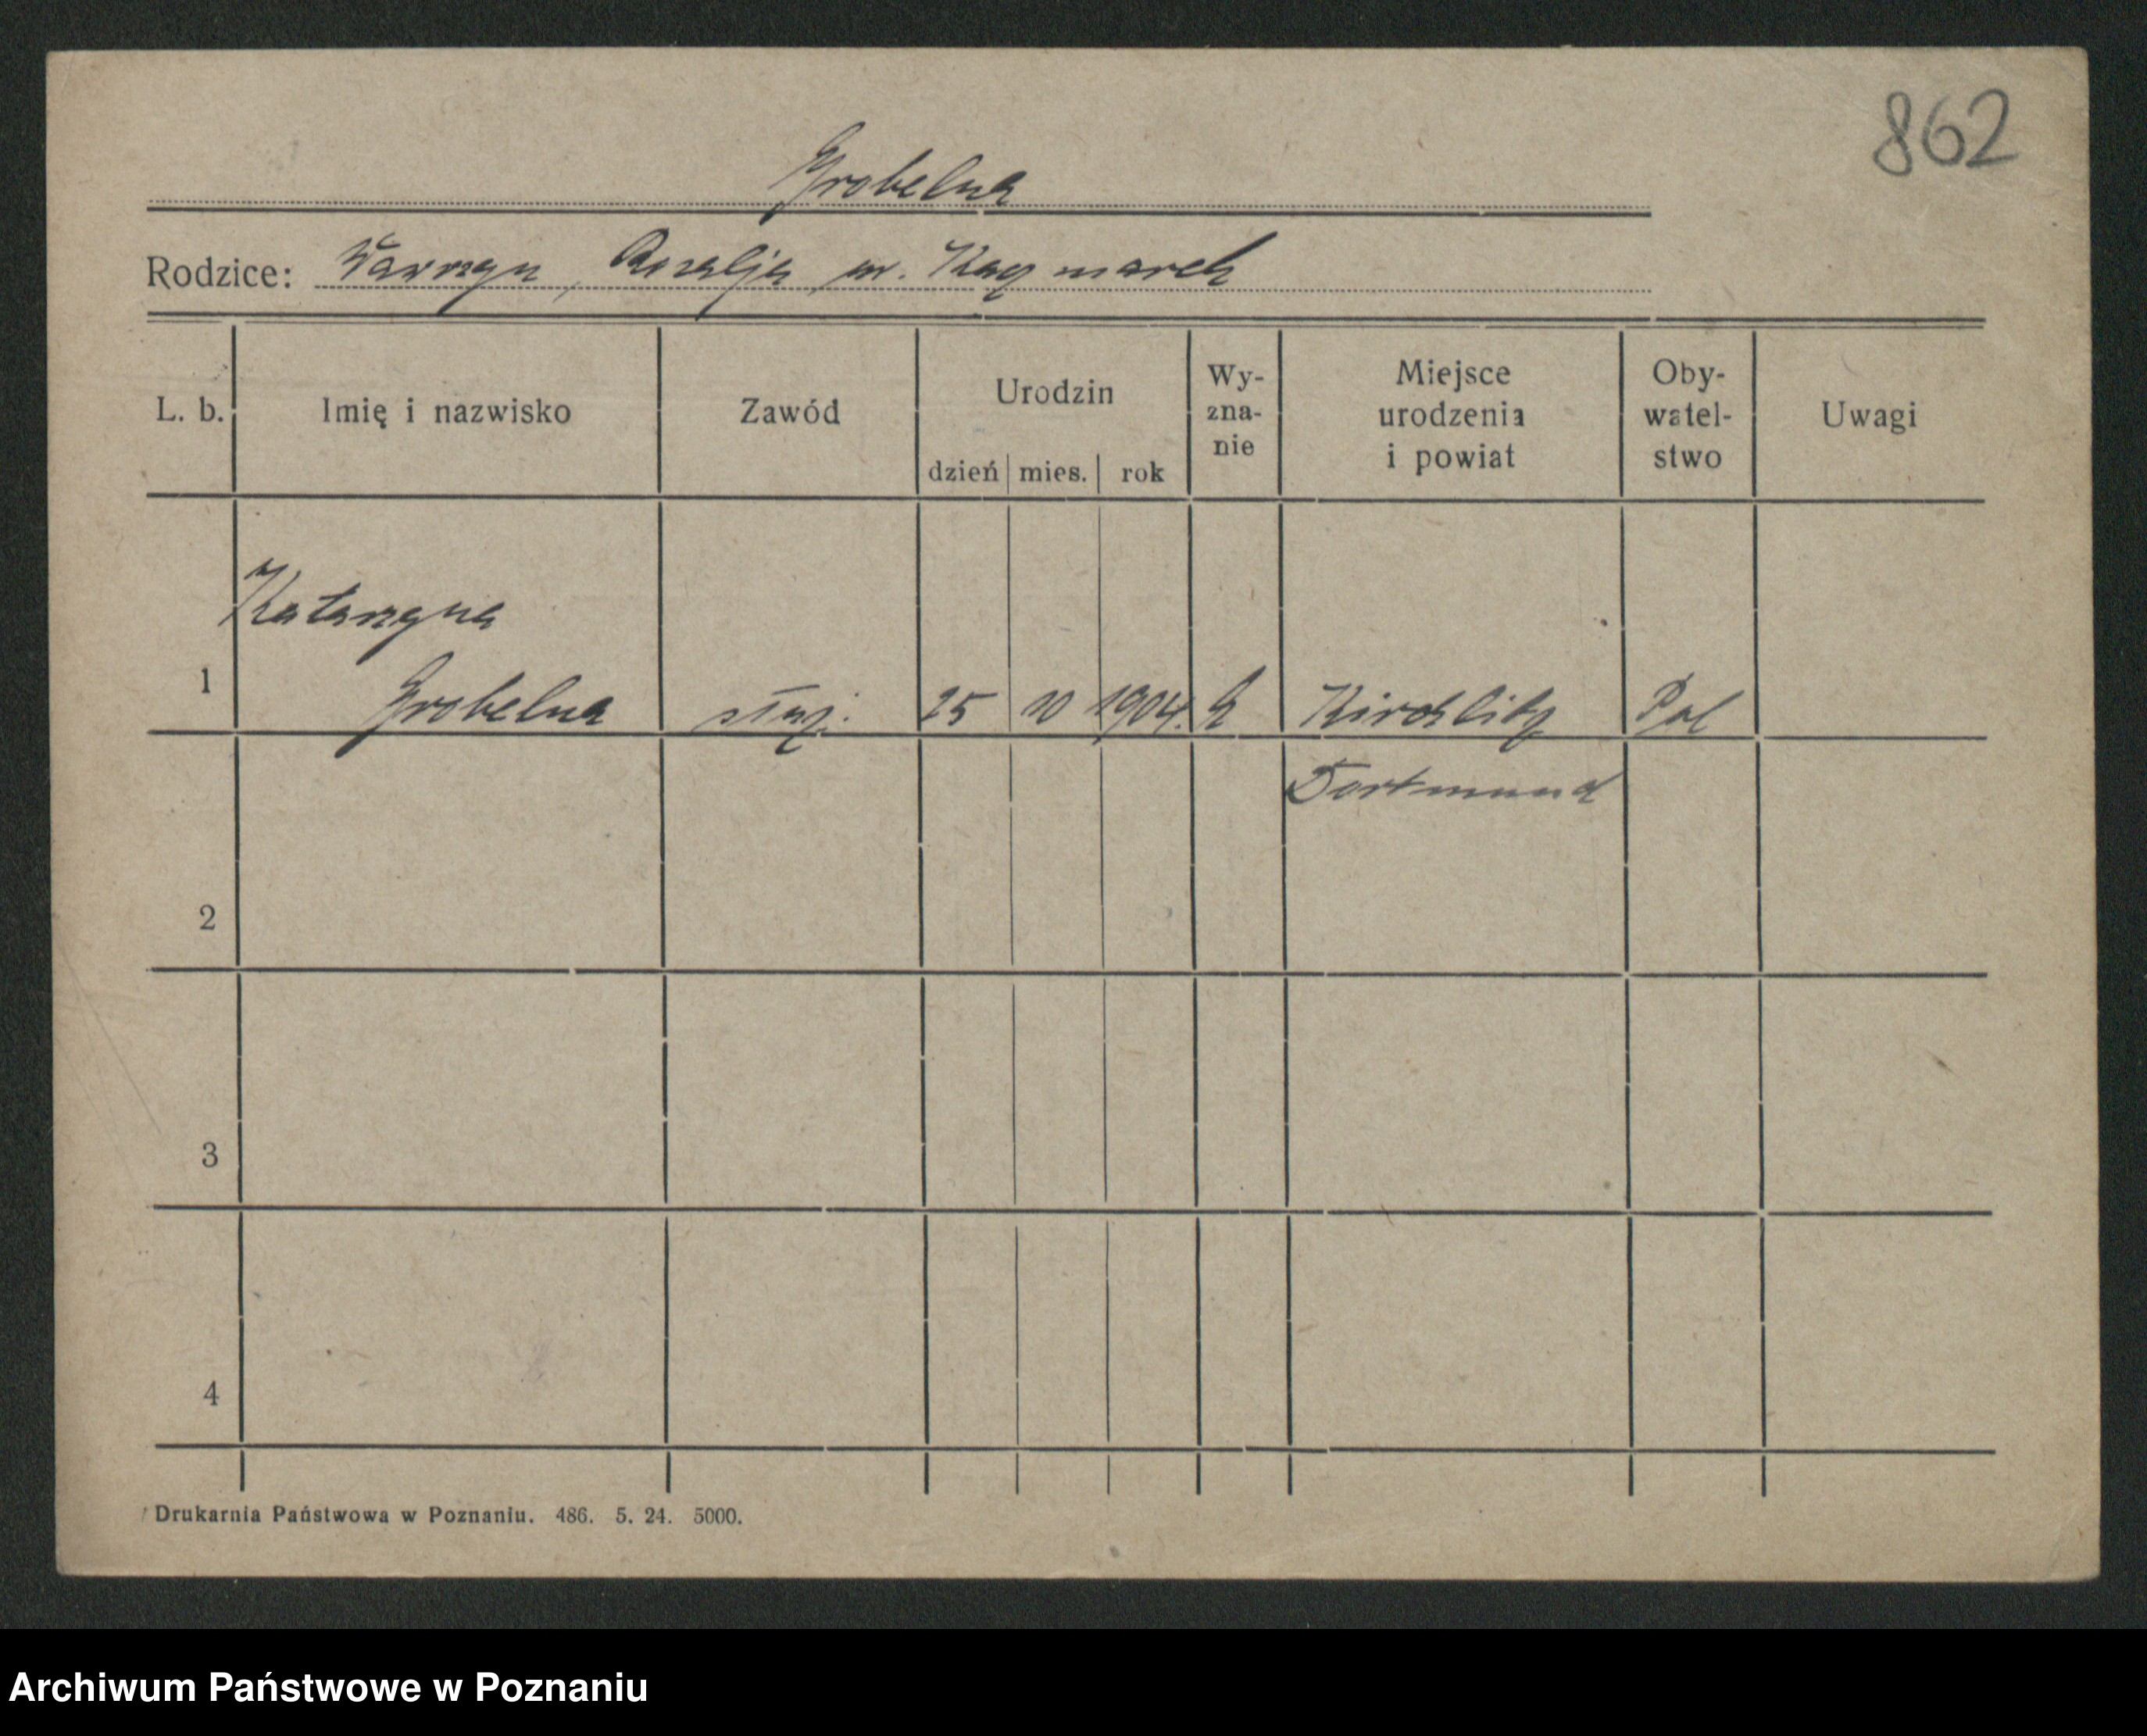 862
Grobelna
Rodzice: Wawrzyn, Rozalja ur. Kaczmarek
L. b. Imię i nazwisko Zawód Urodzin dzień mies. rok Wy-zna-nie Miejsce urodzenia i powiat Oby-watel-stwo Uwagi
Katarzyna
1 Grobelna służ. 25 10 1904. k Pol
Dortmund
2
3
4
Drukarnia Państwowa w Poznaniu. 486. 5. 24. 5000.
Archiwum Państwowe w Poznaniu